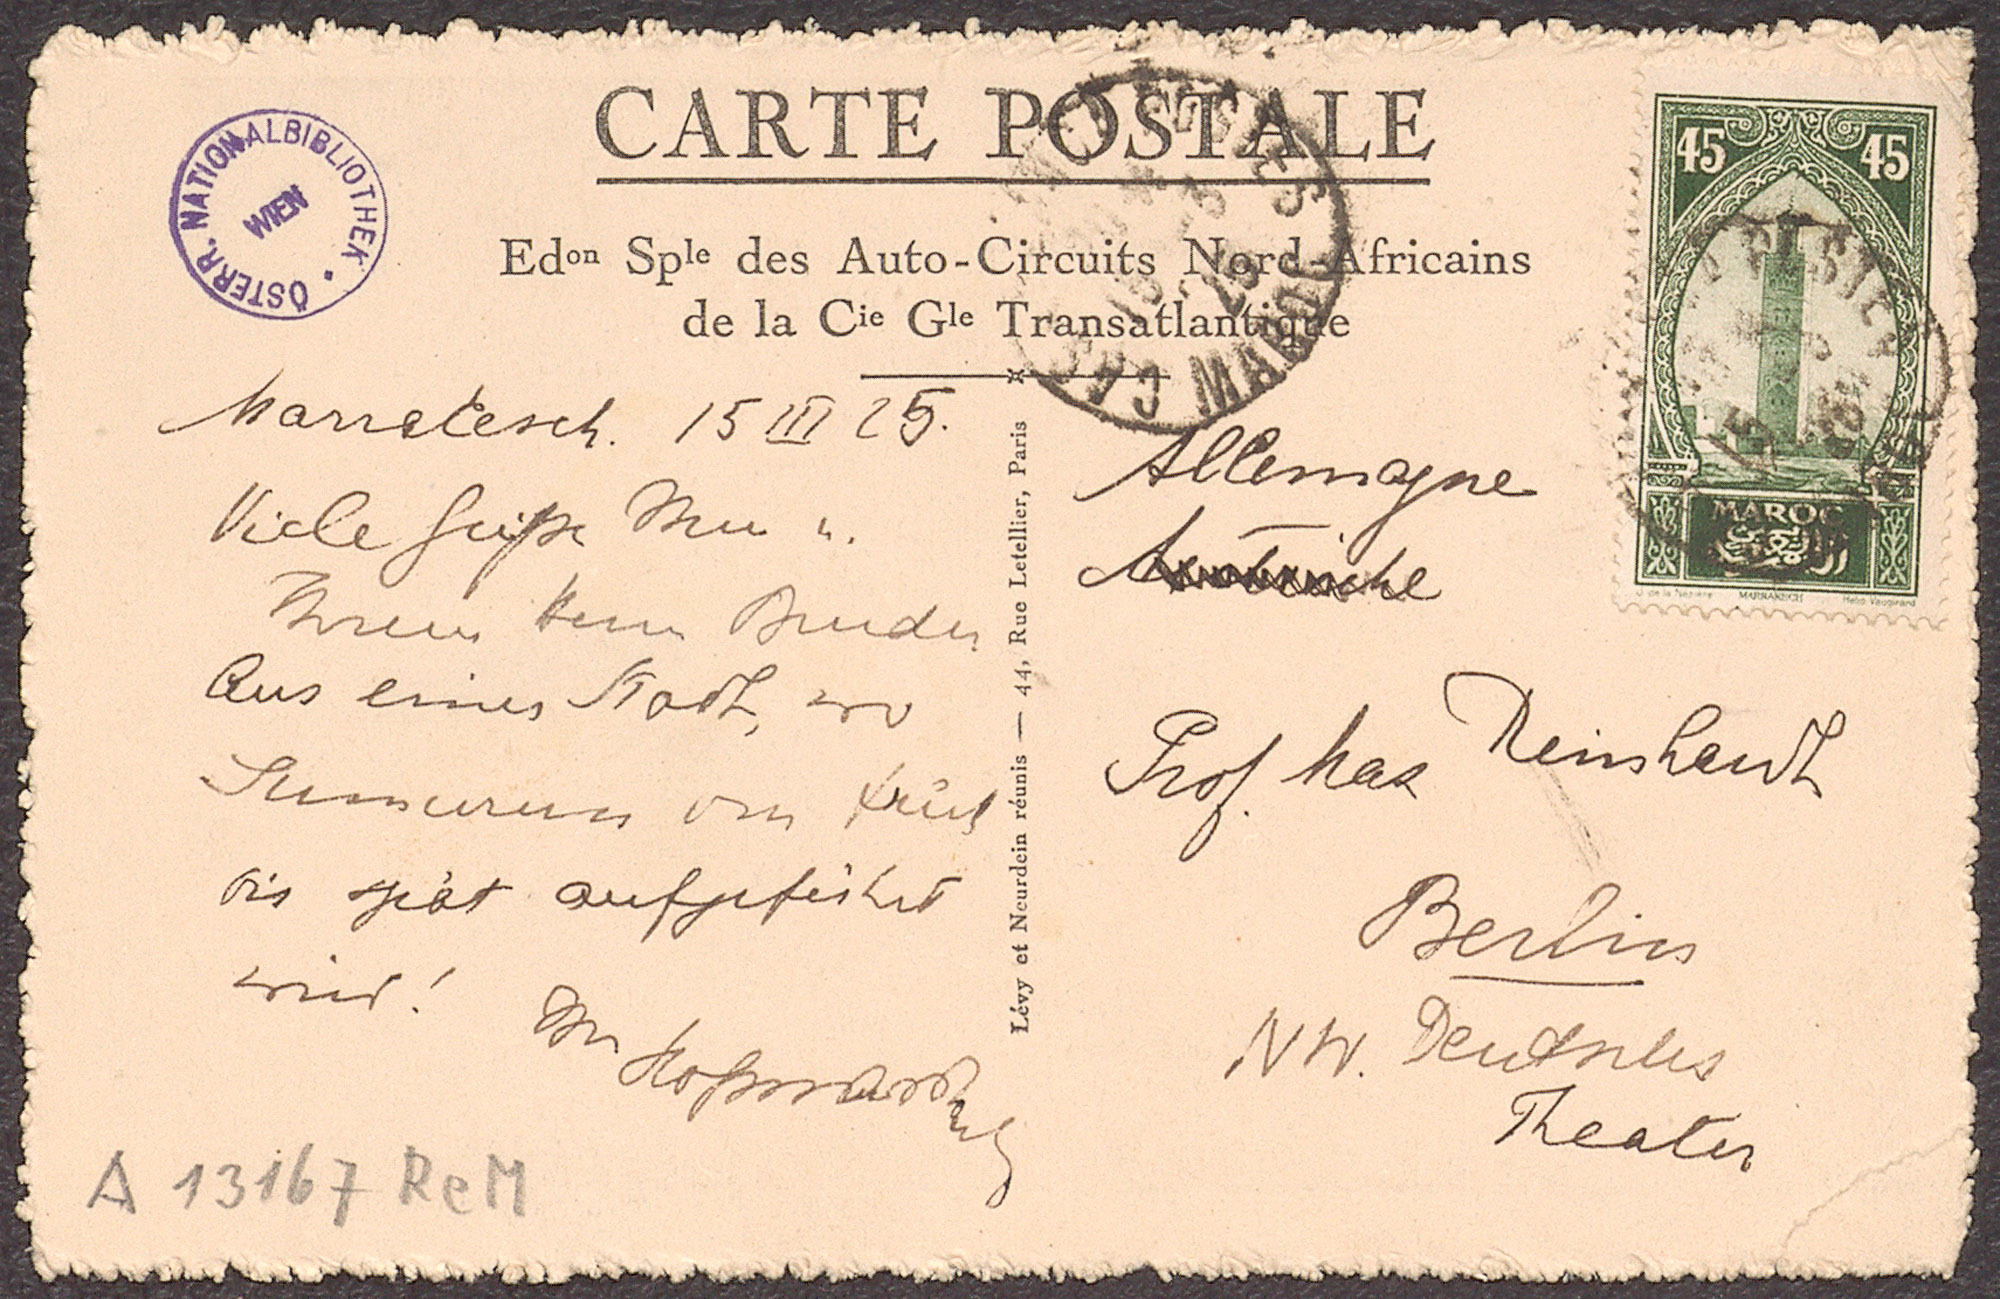 CARTE POSTALE
ÖSTERR. NATIONALBIBLIOTHEK •
WIEN
Edon Sple des Auto-Circuits Nord-Africains
de la Cie Gle Transatlantique
45 45
MAROC
MARRAKECH
Helio Vaugirard
Marrakesch. 15 III 25.
Viele Grüße Ihnen u.
Ihrem Herrn Bruder
Aus einer Stadt, wo
Sumurun von früh
bis spät aufgeführt
wird!
Ihr Hofmannsthal
Lévy et Neurdein réunis — 44, Rue Letellier, Paris
Allemagne
Autriche
Prof. Max Reinhardt
Berlin
NW. Deutsches
Theater
A 13167 ReM